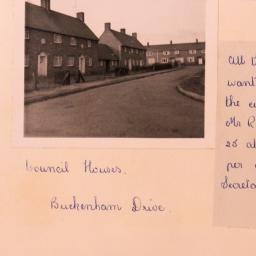 Council Houses.
Buckenham Drive.
All
want
the
Mr R
25 al
per
Secreta